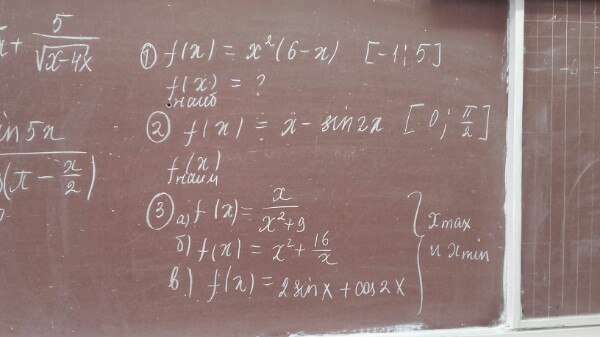 5
√x-4x
① f(x) = x²(6-x) [-1; 5]
f(x) = ?
наиб
② f(x) = x - sin2x [0; π/2]
f(x)
наим
③ а) f(x) = x/(x²+9)
б) f(x) = x² + 16/x
в) f(x) = 2sinx + cos2x
xmax
и xmin
in 5x
(π - x/2)